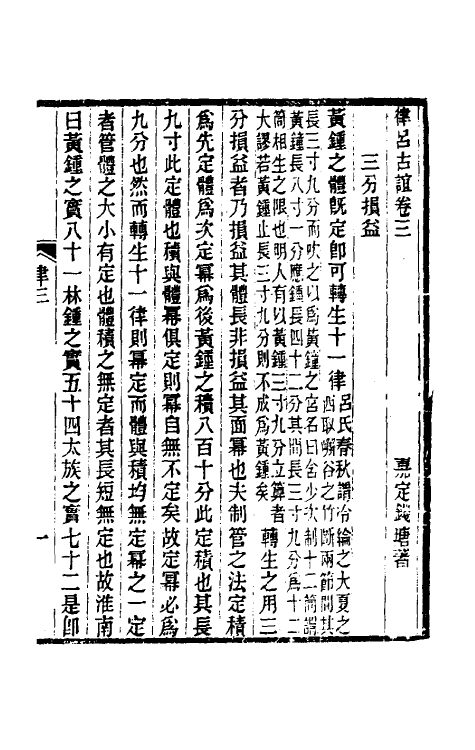 律呂古誼卷三　嘉定錢塘著
三分損益
黃鍾之體旣定卽可轉生十一律呂氏春秋謂泠綸之大夏之西取嶰谷之竹斷兩節間其
長三寸九分而吹之以爲黃鐘之宮名曰含少次制十二筒謂
黃鐘長八寸一分應鐘長四寸二分其間長三寸九分爲十二
筒相生之限也明人有以黃鍾三寸九分立算者
大謬若黃鍾止長三寸九分則不成爲黃鍾矣轉生之用三
分損益者乃損益其體長非損益其面冪也夫制管之法定積
爲先定體爲次定冪爲後黃鍾之積八百十分此定積也其長
九寸此定體也積與體冪俱定則冪自無不定矣故定冪必爲
九分也然而轉生十一律則冪定而體與積均無定冪之一定
者管體之大小有定也體積之無定者其長短無定也故淮南
曰黃鍾之實八十一林鍾之實五十四太族之實七十二是卽
律三　一